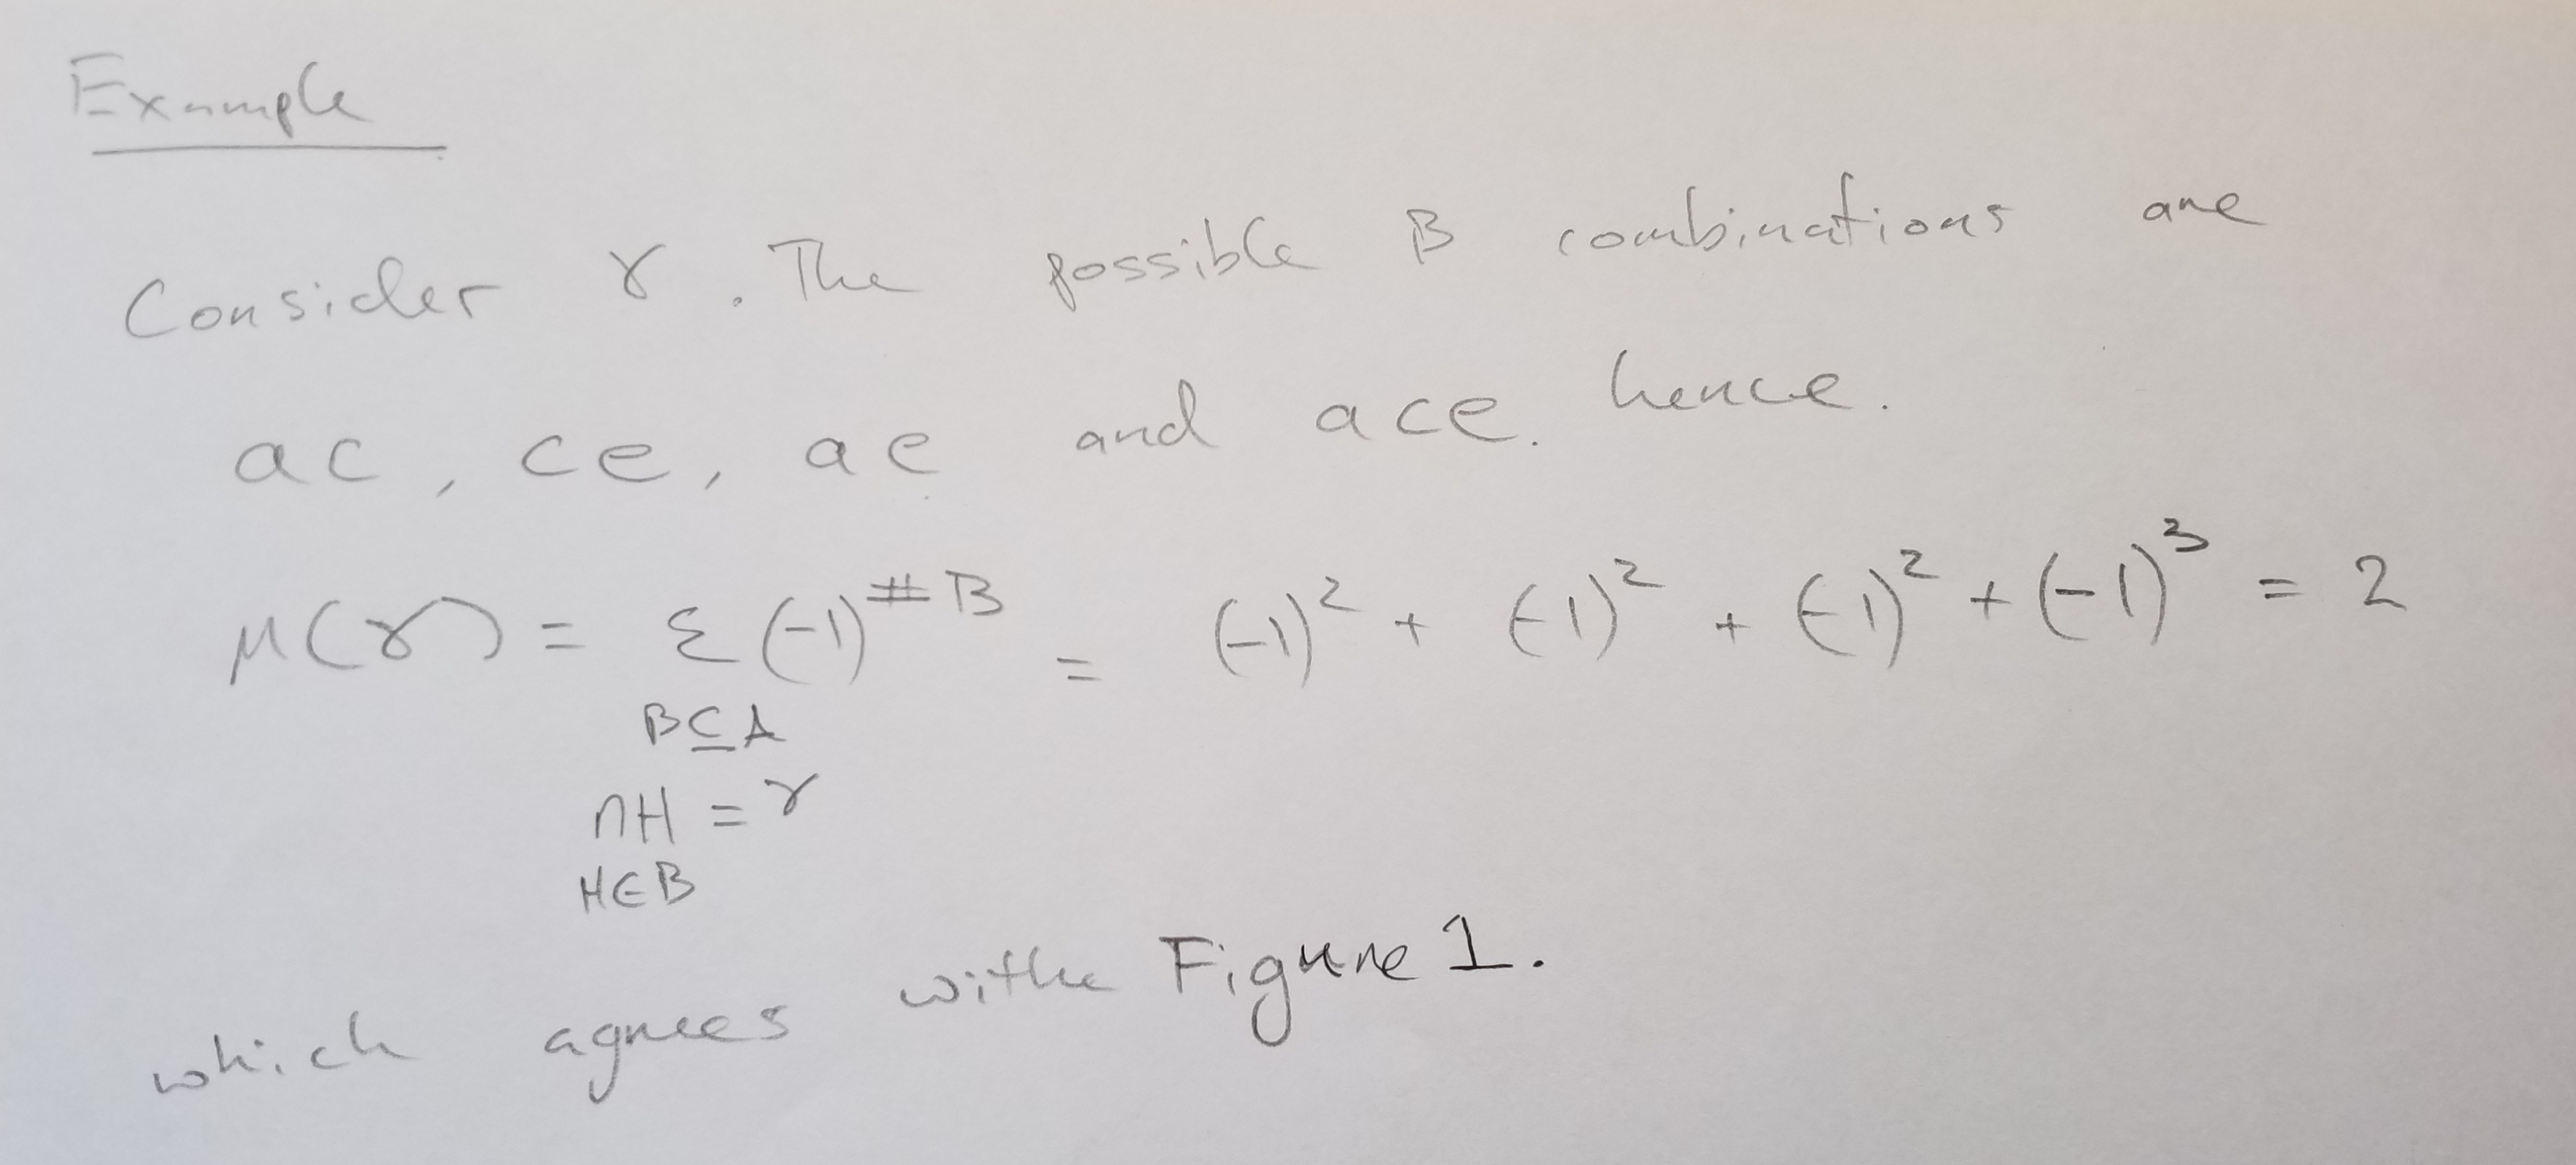 Example
Consider γ. The possible B combinations are
ac, ce, ae and ace. hence.
μ(γ) = Σ (-1)^#B = (-1)^2 + (-1)^2 + (-1)^2 + (-1)^3 = 2
B⊆A
∩H = γ
H∈B
which agrees withe Figure 1.